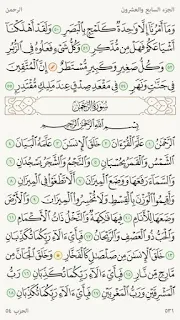 الجزء السابع والعشرون
الرحمن
وَمَآ أَمْرُنَآ إِلَّا وَٰحِدَةٌ كَلَمْحٍۭ بِٱلْبَصَرِ ٥٠ وَلَقَدْ أَهْلَكْنَآ
أَشْيَاعَكُمْ فَهَلْ مِن مُّدَّكِرٍ ٥١ وَكُلُّ شَىْءٍ فَعَلُوهُ فِى ٱلزُّبُرِ
٥٢ وَكُلُّ صَغِيرٍ وَكَبِيرٍ مُّسْتَطَرٌ ٥٣ إِنَّ ٱلْمُتَّقِينَ
فِى جَنَّٰتٍ وَنَهَرٍ ٥٤ فِى مَقْعَدِ صِدْقٍ عِندَ مَلِيكٍ مُّقْتَدِرٍۭ ٥٥
سُورَةُ الرَّحْمَٰن
بِسْمِ ٱللَّهِ ٱلرَّحْمَٰنِ ٱلرَّحِيمِ
ٱلرَّحْمَٰنُ ١ عَلَّمَ ٱلْقُرْءَانَ ٢ خَلَقَ ٱلْإِنسَٰنَ ٣ عَلَّمَهُ ٱلْبَيَانَ ٤
ٱلشَّمْسُ وَٱلْقَمَرُ بِحُسْبَانٍ ٥ وَٱلنَّجْمُ وَٱلشَّجَرُ يَسْجُدَانِ ٦
وَٱلسَّمَآءَ رَفَعَهَا وَوَضَعَ ٱلْمِيزَانَ ٧ أَلَّا تَطْغَوْا۟ فِى ٱلْمِيزَانِ ٨
وَأَقِيمُوا۟ ٱلْوَزْنَ بِٱلْقِسْطِ وَلَا تُخْسِرُوا۟ ٱلْمِيزَانَ ٩ وَٱلْأَرْضَ
وَضَعَهَا لِلْأَنَامِ ١٠ فِيهَا فَٰكِهَةٌ وَٱلنَّخْلُ ذَاتُ ٱلْأَكْمَامِ ١١
وَٱلْحَبُّ ذُو ٱلْعَصْفِ وَٱلرَّيْحَانُ ١٢ فَبِأَىِّ ءَالَآءِ رَبِّكُمَا تُكَذِّبَانِ
١٣ خَلَقَ ٱلْإِنسَٰنَ مِن صَلْصَٰلٍ كَٱلْفَخَّارِ ١٤ وَخَلَقَ ٱلْجَآنَّ مِن
مَّارِجٍ مِّن نَّارٍ ١٥ فَبِأَىِّ ءَالَآءِ رَبِّكُمَا تُكَذِّبَانِ ١٦ رَبُّ
ٱلْمَشْرِقَيْنِ وَرَبُّ ٱلْمَغْرِبَيْنِ ١٧ فَبِأَىِّ ءَالَآءِ رَبِّكُمَا تُكَذِّبَانِ ١٨
٥٣١
الحزب ٥٤